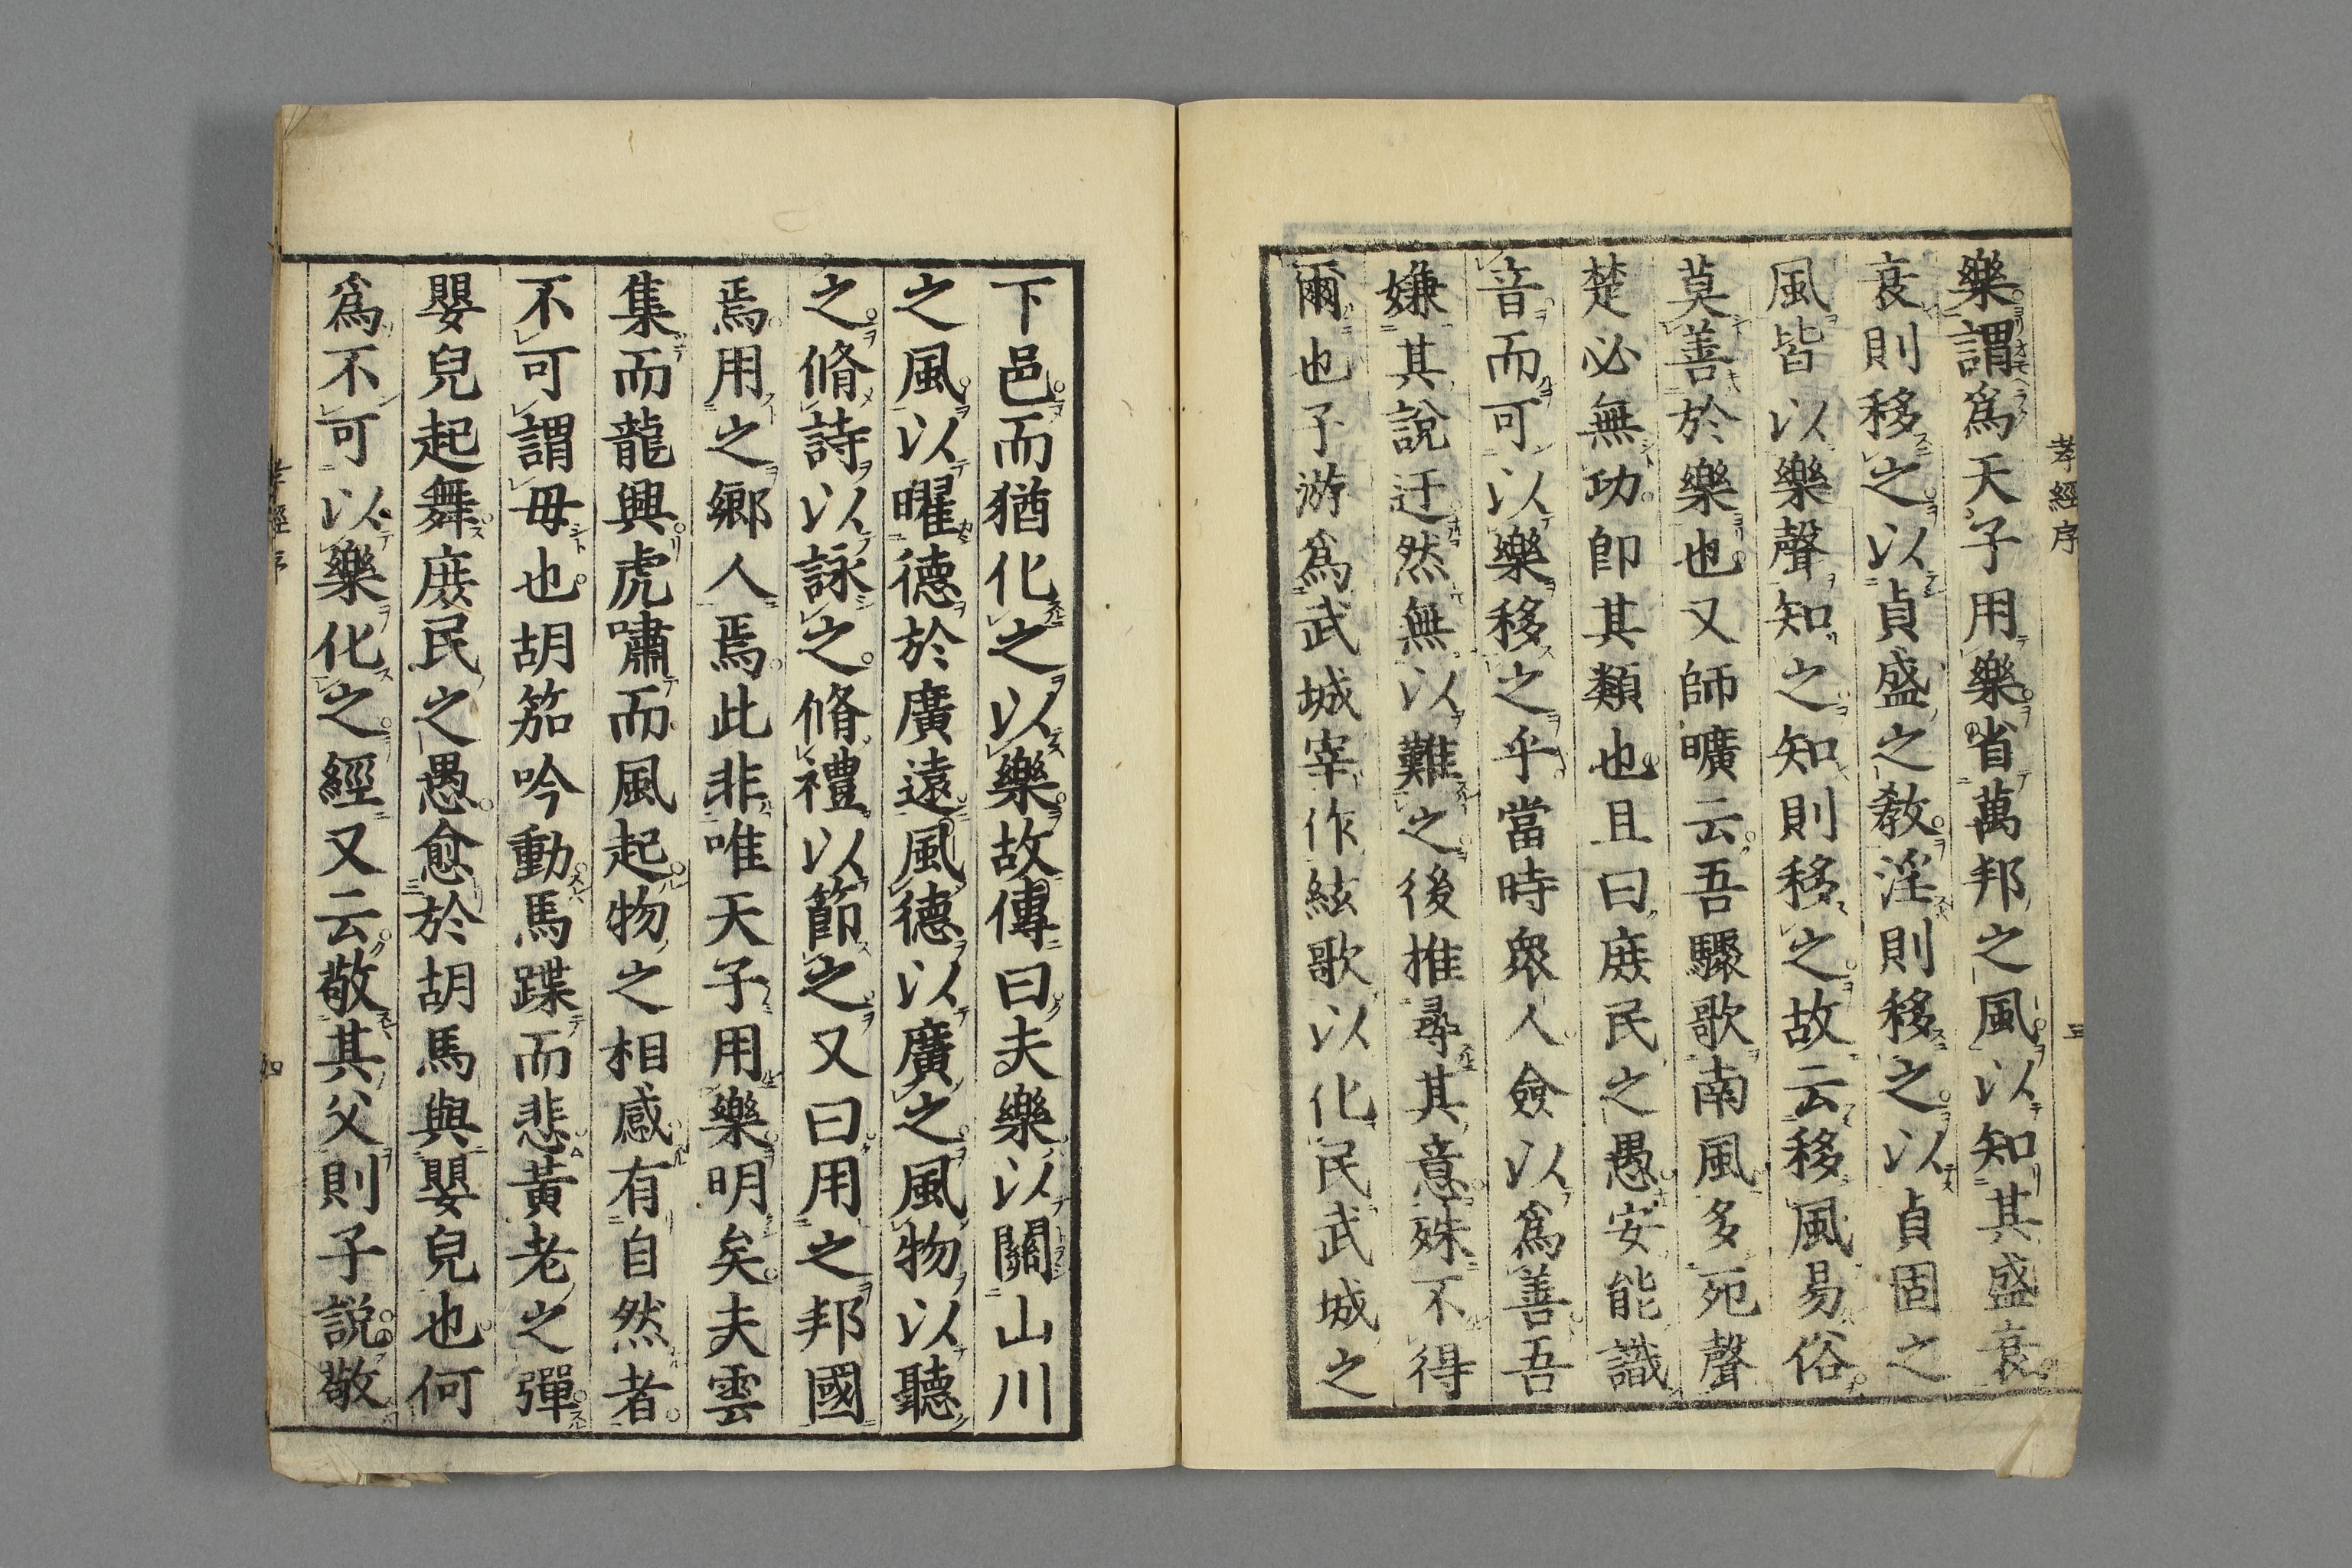 孝經序
三
樂謂爲天子用樂省萬邦之風以知其盛衰
衰則移之以貞盛之教淫則移之以貞固之
風皆以樂聲知之知則移之故云移風易俗
莫善於樂也又師曠云吾驟歌南風多死聲
楚必無功即其類也且曰庶民之愚安能識
音而可以樂移之乎當時衆人僉以爲善吾
嫌其說迂然無以難之後推尋其意殊不得
爾也子游爲武城宰作絃歌以化民武城之
下邑而猶化之以樂故傳曰夫樂以關山川
之風以曜德於廣遠風德以廣之風物以聽
之脩詩以詠之脩禮以節之又曰用之邦國
焉用之鄉人焉此非唯天子用樂明矣夫雲
集而龍興虎嘯而風起物之相感有自然者
不可謂毋也胡笳吟動馬蹀而悲黃老之彈
嬰兒起舞庶民之愚愈於胡馬與嬰兒也何
爲不可以樂化之經又云敬其父則子説敬
孝經序
四